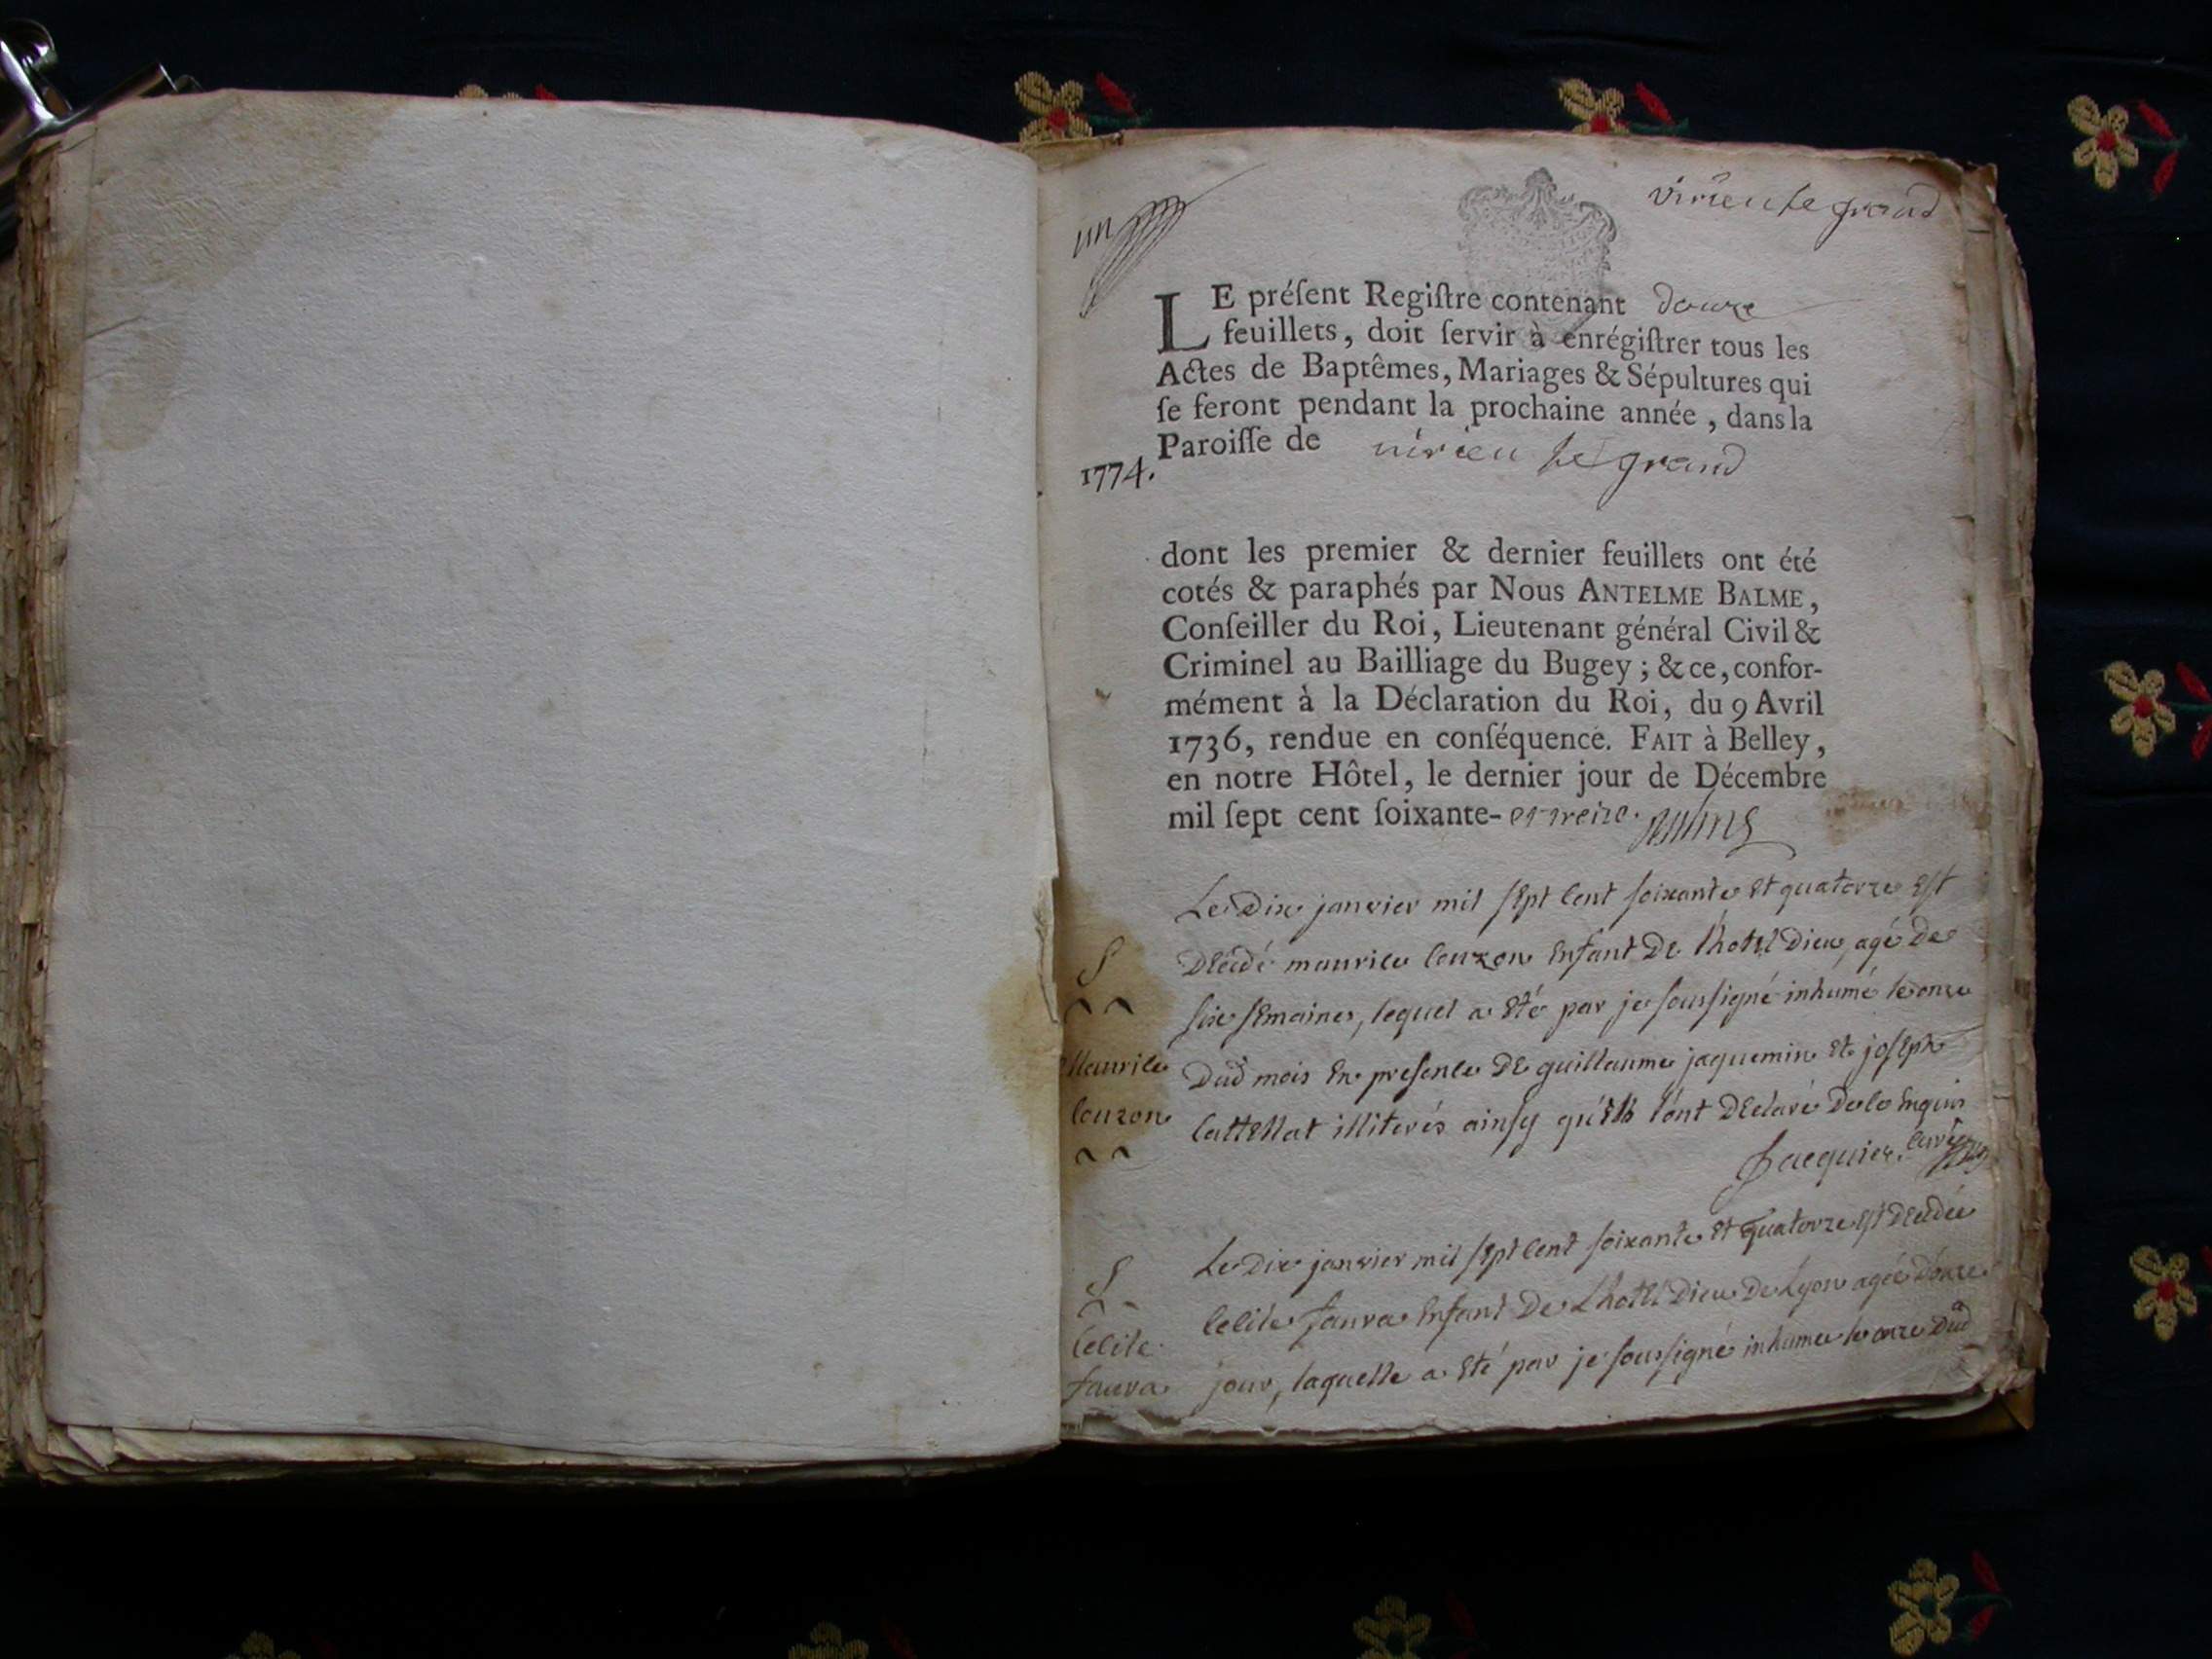 un
virieu le grand
LE préſent Regiſtre contenant douze
feuillets, doit ſervir à enrégiſtrer tous les
Actes de Baptêmes, Mariages & Sépultures qui
ſe feront pendant la prochaine année, dans la
Paroiſſe de virieu le grand
1774.
dont les premier & dernier feuillets ont été
cotés & paraphés par Nous ANTELME BALME,
Conſeiller du Roi, Lieutenant général Civil &
Criminel au Bailliage du Bugey; & ce, confor-
mément à la Déclaration du Roi, du 9 Avril
1736, rendue en conſéquence. FAIT à Belley,
en notre Hôtel, le dernier jour de Décembre
mil ſept cent ſoixante- et treize. Balme
Le Dix janvier mil sept cent soixante et quatorze est
Décédé maurice couzon enfant De l'hotel Dieu, agé De
six semaines, lequel a eté par je soussigné inhumé le onze
Dud mois en presence De guillaume jaquemin et joseph
cattellat illiterés ainsy qu'ils l'ont Déclaré De ce enquis
Jacquier, curé
S
Maurice
couzon
Le Dix janvier mil sept cent soixante et quatorze est Décédée
cecile faura enfant De L'hotel Dieu De Lyon agée D'onze
jour, laquelle a eté par je soussigné inhumée le onze Dud
S
cecile
faura